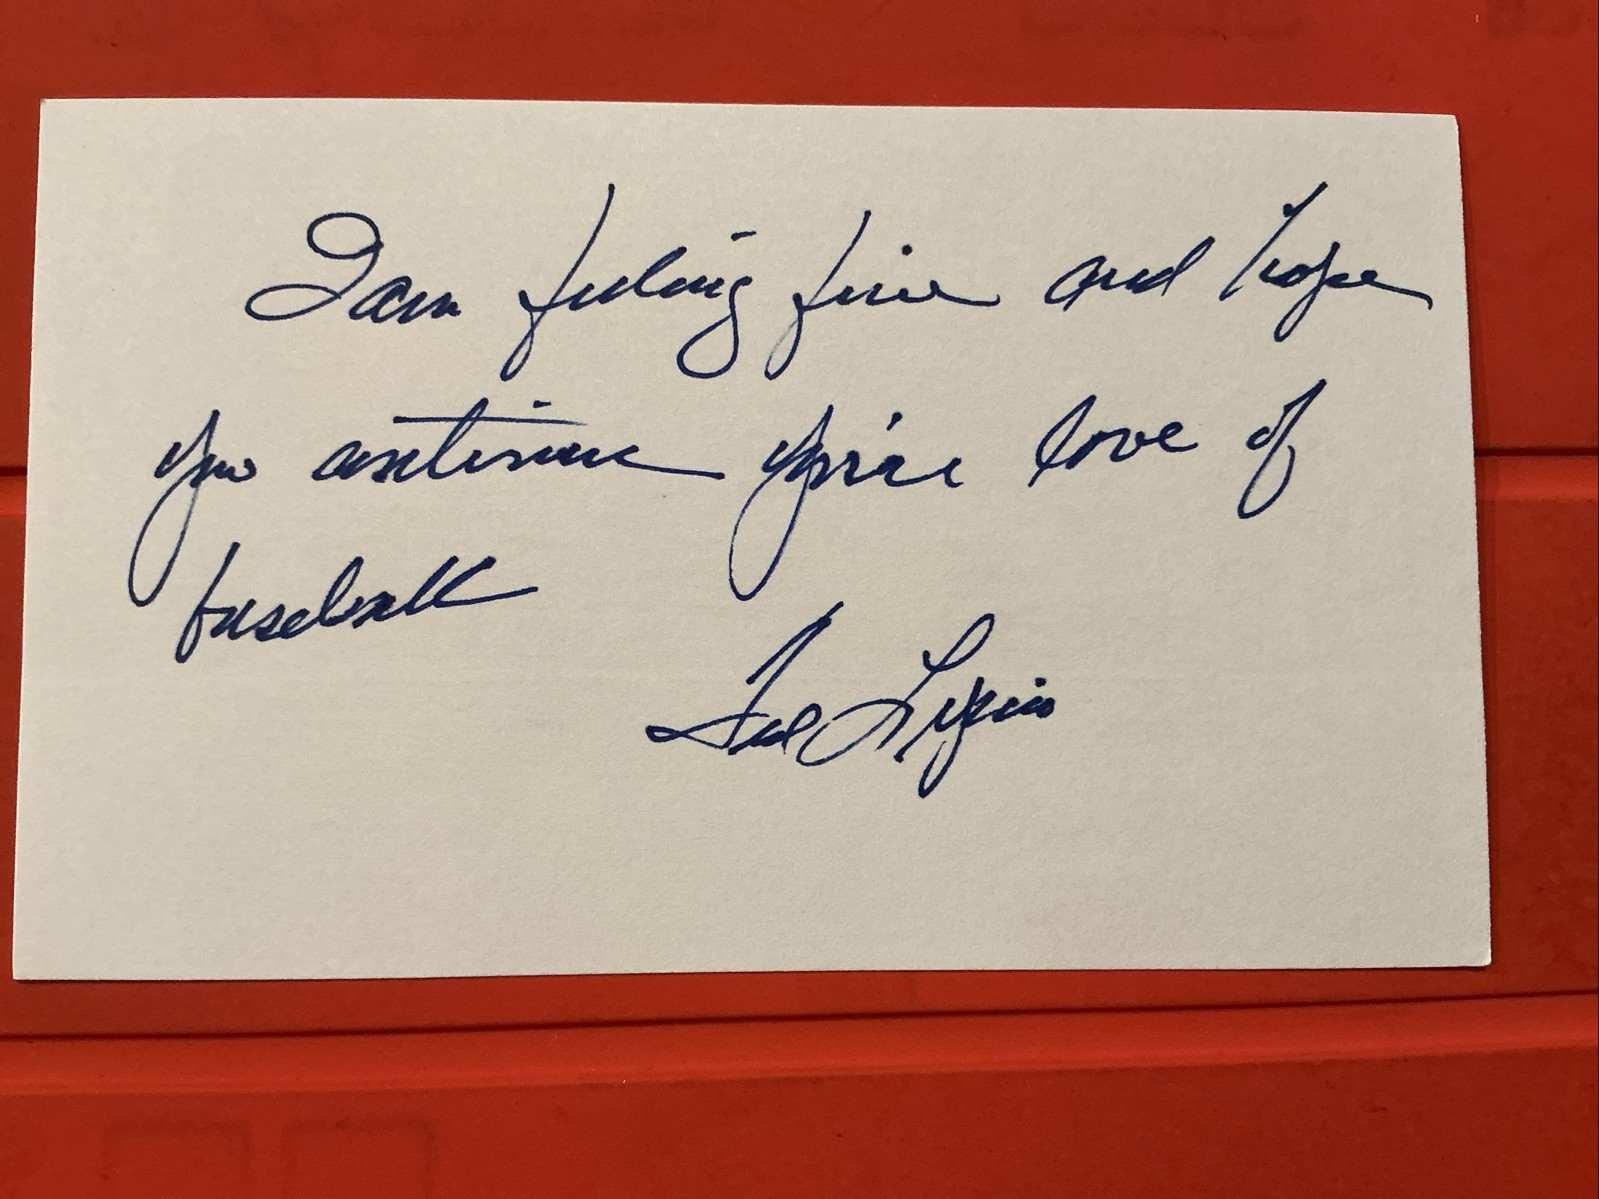 I am feeling fine and hope
you continue you're love of
baseball
Ted Lepcio